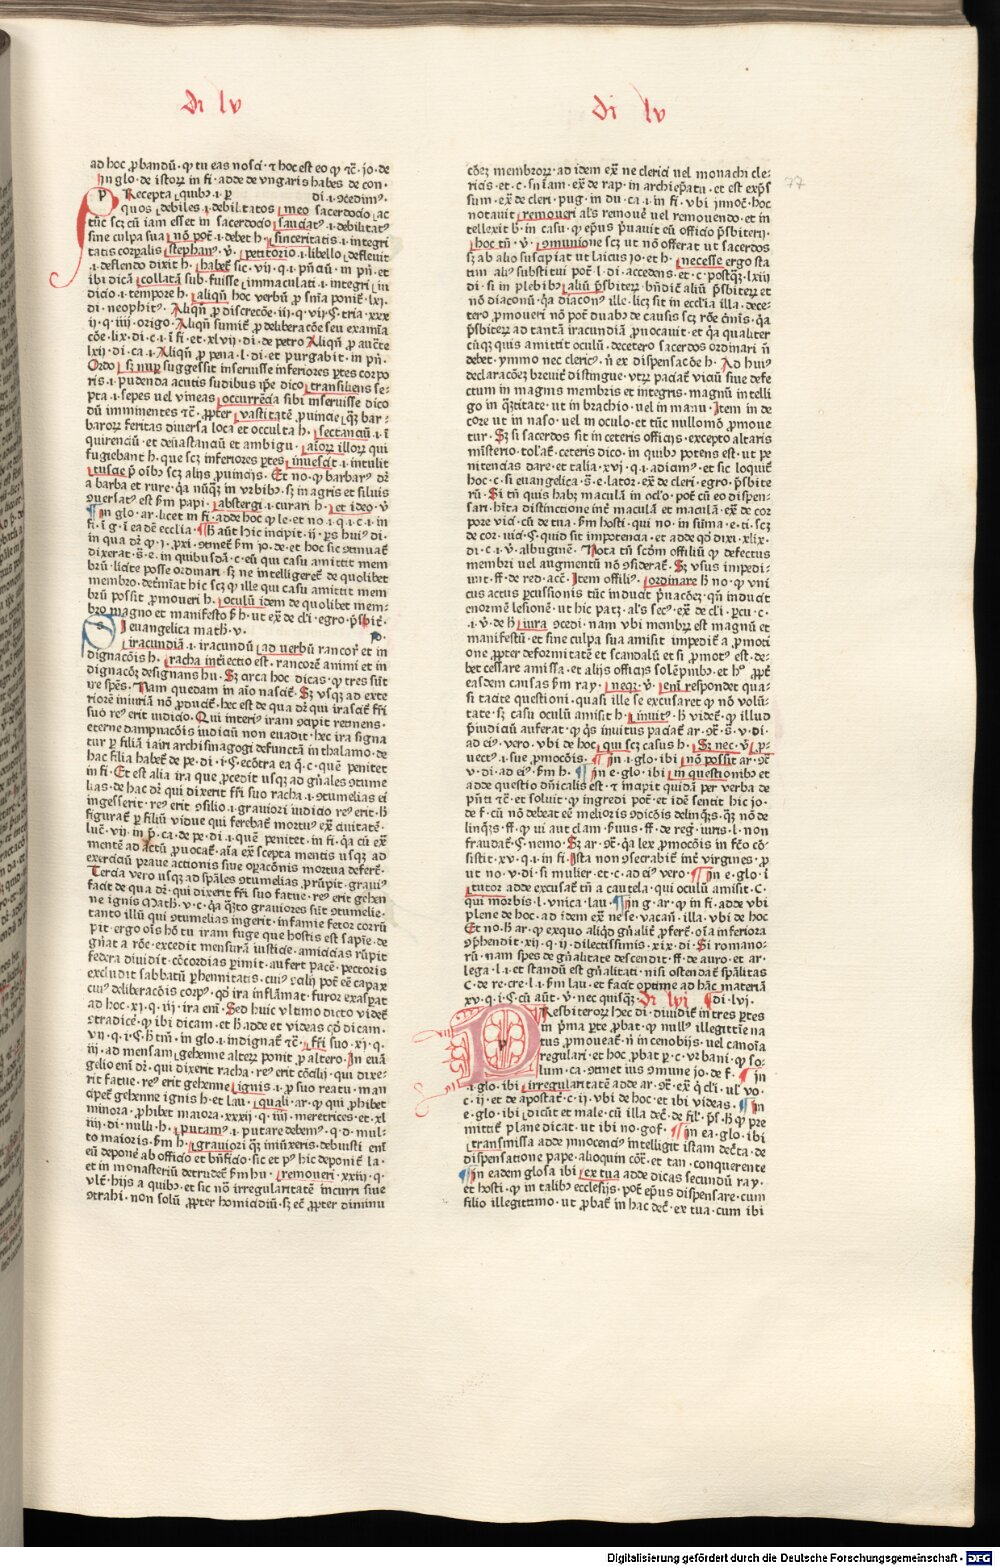 di lv
di lv
77
ad hoc ꝓbandū · qꝫ tu eas nosci · ⁊ hoc est eo ꝙ ⁊c̄ · jo · de
in glo · de istoꝝ in fi · adde de vngaris habes de con ·
Recepta quibꝫ · i · di · i · ꝯcedimꝰ ·
quos debiles · i · debilitatos meo sacerdocio ac
tūc scꝫ cū iam esset in sacerdocio sauciatꝰ · i · debilitatꝰ
sine culpa sua nō pot̄ · i · debet h · sinceritatis · i · integri
tatis corpalis stephanꝰ · v̄ · petitorio · i · libello defleuit
· i · deflendo dixit h · habet̄ sic · vij · q · i · pn̄ciū · in pn̄ · et
ibi dicā collatā sub · fuisse immaculati · i · integri in
dicio · i · tempore h · aliqn̄ hoc verbū ꝓ sn̄ia ponit̄ · lxi ·
di · neophitꝰ · Aliqn̄
ij · q · iiij · origo · Aliqn̄ sumit̄ ꝓ deliberacōe seu examīa
cōe · lix · di · c · i · ī fi · et · xlvij · di · de petro Aliqn̄
lxij · di · ca · i · Aliqn̄ ꝓ pena · l · di · et purgabit · in pn̄ ·
Ordo sꝫ nuꝑ suggessit inseruisse inferiores ꝑtes corpo
ris · i · pudenda acutis sudibus ip̄e dico transiliens se ⸗
pta · i · sepes vel vineas occurrēcia sibi inseruisse dico
dū imminentes ⁊c̄ · ꝓpter vastitatē ꝓuincie qꝫ bar ⸗
baroꝝ feritas diuersa loca et occulta h · sectanciū · i · ī
quirenciū · et deuastanciū et ambigu · aīoꝝ illoꝝ qui
fugiebant h · que scꝫ inferiores ꝑtes inuescit · i · intulit
tuscie p̄ oībꝫ scꝫ alijs ꝓuincijs · Et no · ꝙ barbarꝰ dr̄
a barba et rure · qa nūqꝫ in vrbibꝫ · sꝫ in agris et siluis
ꝯuersatꝰ est ẜm papi · abstergi · i · curari h · et ideo · v̄
in glo · ar · licet in fi · adde hoc
fi · ī g · i ea dē ecclia · aūt hic incipit · ij · ꝑs huiꝰ di ·
dixerat · s̄ · e · in quibusdā · c · eū qui casu amittit mem
brū · licite posse ordinari · sꝫ ne intelligeret̄ de quolibet
membro · det̄mīat hic scꝫ ꝙ ille qui casu amittit mem
brū possit ꝓmoueri h · oculū idem de quolibet mem ⸗
bro magno et manifesto
i euangelica math̄ · v ·
iracundiā · i · iracundū ad verbū rancor̄ et in
dignacōis h · racha int̄iectio est · rancorē animi et in
dignacōꝫ designans hu · Sꝫ circa hoc dicas · ꝙ tres sūt
ire spēs · Nam quedam in aīo nascit̄ · Sꝫ vsqꝫ ad exte
riorē iniuriā nō ꝓducit̄ · hec est de qua dr̄ qui irascit̄ fr̄i
suo reꝰ erit iudicio · Qui interiꝰ iram ꝯcipit retinens ·
eterne dampnacōis iudiciū non euadit · hec ira signa
tur ꝑ filiā iairi archisinagogi defunctā in thalamo · de
hac filia habet̄ de pe · di · i · Ꞔ · ecōtra ea q̄ · c · quē penitet
in fi · Et est alia ira que ꝓcedit vsqꝫ ad gn̄ales ꝯtume
lias · de hac dr̄ qui dixerit fr̄i suo racha · i · ꝯtumelias ei
ingesserit · reꝰ erit ꝯsilio · i · grauiori iudicio reꝰ erit · h̄
figurat̄ ꝑ filiū vidue qui ferebat̄ mortuꝰ ex̄ ciuitatē ·
luc̄ · vij · in p̄ · ca · de pe · di · i · quē penitet · in fi · qa cū ex̄
mentē ad actū ꝓuocat̄ · aīa ex̄ scepta mentis vsqꝫ ad
exerciciū praue actionis siue oꝑacōnis mortua defert̄ ·
Tercia vero vsqꝫ ad spāles ꝯtumelias ꝓrūpit · grauiꝰ
facit de qua dr̄ · qui dixerit fr̄i suo fatue · reꝰ erit gehen
ne ignis Math̄ · v · c · qa qn̄to grauiores sūt ꝯtumelie ·
tanto illū qui ꝯtumelias ingerit · infamie fetor corrū
pit · ergo oīs hō tu iram fuge que hostis est sapīe · de
gn̄at a rōe · excedit mensurā iusticie · amicicias rūpit
federa diuidit · cōcordias ꝑimit · aufert pacē · pectoris
excludit sabbatū ꝑhennitatis · cuiꝰ celū pōt eē capax
cuiꝰ deliberacōis corpꝰ · qd̄ ira inflāmat · furor exaspat
ad hoc · xj · q · iij · ira enī · Sed huic vltimo dicto videt̄
ꝯtradice · ꝙ ibi dicam · et h̄ adde et videas qd̄ dicam ·
vij · q · i · Ꞔ · h̄ tm̄ · in glo · i · indignat̄ ⁊c̄ · fr̄i suo · xj · q ·
iij · ad mensam gehenne alteꝝ ponit ꝓ altero · In euā
gelio enī dr̄ · qui dixerit racha · reꝰ erit cōcilij · qui dixe ⸗
rit fatue · reꝰ erit gehenne ignis · i · ꝑ suo reatu · man
cipet̄ gehenne ignis h · et lau · quali · ar · ꝙ qui ꝓhibet
minora · ꝓhibet maiora · xxxij · q · iiij · meretrices · et · xl
iiij · di · nulli · h · putam · i · putare debemꝰ · q · d · mul ⸗
to maioris · ẜm h · grauiori qꝫ miūxeris · debuisti enī
eū deponē · ab officio et bn̄ficio · sic et pꝰ hic deponit̄ la ·
et in monasteriū detrudet̄ ẜm hu · remoueri · xxiij · q ·
vlt̄ · hijs a quibꝫ · et sic nō irregularitatē incurri siue
ꝯtrahi · non solū ꝓpter homicidiū · sꝫ et̄ ꝓpter diminu
cōeꝫ membroꝝ · ad idem ex̄ ne clerici vel monachi cle ⸗
ricis · et · c · sn̄iam · ex̄ de rap · in archiep̄atu · et est exp̄s
sum · ex̄ de cleri · pug · in du · ca · i · in fi · vbi jnnoc̄ · hoc
notauit remoueri al̄s remouē vel remouendo · et in
tellexit h̄ · in casu · ꝙ ep̄us p̄uauit eū officio p̄sbiterij ·
hoc tn̄ · v̄ · ꝯmunione scꝫ ut nō offerat ut sacerdos
sꝫ ab alio suscipiat ut laicus jo · et h · necesse ergo sta
tim aliꝰ substitui pot̄ · l · di · accedens · et · c · postqꝫ · lxiij
di · si in plebibꝫ aliū p̄sbiteꝝ · bn̄dic̄ aliū p̄sbiteꝝ et
nō diaconū · qa diaconꝰ ille · licꝫ sit in ecclia illa · dece ⸗
tero ꝓmoueri nō pot̄ duabꝫ de causis scꝫ rōe c̄mis · qa
p̄sbiteꝝ ad tantā iracundiā ꝓuocauit · et qa qualiter
cūqꝫ quis amittit oculū · decetero sacerdos ordinari n̄
debet · ymmo nec clericꝰ · n̄ ex dispensacōe h · Ad huiꝰ
declaracōeꝫ breuit̄ distingue · vtꝝ paciat̄ viciū siue defe
ctum in magnis membris et integris · magnū intelli
go in qn̄titate · ut in brachio · vel in manu · Item in de
core ut in naso · vel in oculo · et tūc nullomō ꝓmoue
tur · Sꝫ si sacerdos sit in ceteris officijs · excepto altaris
mīsterio · tolat̄ · ceteris dico · in quibꝫ potens est · ut pe
nitencias dare · et talia · xvj · q · i · adiamꝰ · et sic loquit̄
hoc · c · si euangelica · s̄ · e · lator · ex̄ de cleri · egro · p̄sbite
rū · Si tn̄ quis habꝫ maculā in oc̄lo · pot̄ cū eo dispen ⸗
sari · hīta distinctione int̄ maculā et maculā · ex̄ de cor
pore vici · cū de tua · ẜm hosti · qui no · in sūma · e · ti · scꝫ
de cor · vici · Ꞔ · quid sit impotencia · et adde qd̄ dixi · xlix ·
di · c · i · v̄ · albuginē · Nota tn̄ scd̄m offiliū ꝙ defectus
membri vel augmentū nō ꝯsiderat̄ · Sꝫ vsus impedi ⸗
unt · ff · de red · acc̄ · Item offiliꝰ · ordinare h̄ no · ꝙ vni
cus actus ꝑcussionis tūc inducit p̄uacōeꝫ · qn̄ inducit
enormē lesionē · ut hic patꝫ · al̄s secꝰ · ex̄ de cl̄i · ꝑcu · c ·
· i · v̄ · de h̄ iura ꝯcedi · nam vbi membꝝ est magnū et
manifestū · et sine culpa sua amisit · impedit̄ a ꝓmoci
one ꝓpter deformitatē et scandalū et si ꝓmotꝰ est · de ⸗
bet cessare amissa · et alijs officijs solēpnibꝫ · et hꝰ ꝓpt̄
easdem causas ẜm ray · neqꝫ · v̄ · enī respondet qua ⸗
si tacite questioni · quasi ille se excusaret ꝙ nō volū ⸗
tate · sꝫ casu oculū amisit h · inuitꝰ · h̄ videt̄ · ꝙ illud
p̄iudiciū auferat · ꝙ qͥs inuitus paciat̄ ar · ꝯt̄ · s̄ · v · di ·
ad eiꝰ · vero · vbi de hoc qui scꝫ casus h · Sꝫ nec · v̄ ꝓ ⸗
uectꝰ · i · sue ꝓmocōis · In · i · glo · ibi nō possit ar · ꝯt̄
v · di · ad eiꝰ · ẜm h · In · e · glo · ibi in questionibꝫ et
adde questio dn̄icalis est · ⁊ incipit quidā per verba de
pn̄ti ⁊c̄ · et soluit · ꝙ ingredi pot̄ · et idē sentit hic jo ·
de f · cū nō debeat eē melioris ꝯdicōis delinqͥs · qꝫ nō de
linqͥs · ff · ꝙ ui aut clam · ẜuus · ff · de reḡ · iuris · l · non
fraudat̄ · Ꞔ · nemo · Sꝫ ar · ꝯt̄ · qa lex ꝓmocōis in fc̄o cō ⸗
sistit · xv · q · i · in fi · Ista non ꝯsecrabit̄ int̄ virgines · ꝓ
ut no · v · di · si mulier · et · c · ad eiꝰ vero · In · e · glo · ī
tutor adde excusat̄ tn̄ a cautela · qui oculū amisit · C ·
qui morbis · l · vnica · lau · In · g · ar · ꝙ in fi · adde vbi
plene de hoc · ad idem ex̄ ne se · vacan̄ · illa · vbi de hoc
Et no · h̄ ar · ꝙ exquo aliqd gn̄alit̄ ꝓfert̄ · oīa inferiora
ꝯp̄hendit · xij · q · ij · dilectissimis · xix · di · Si romano ⸗
rū · nam spes de gn̄alitate descendit · ff · de auro · et ar ·
lega · l · i · et standū est gn̄alitati · nisi ostendat̄ sp̄alitas
C · de re · cre · l · i · ẜm lau · et facit optime ad hāc materiā
xv · q · i · Ꞔ · cū aūt · v̄ · nec quisqꝫ · di lvi di · lvj ·
Resbiteroꝝ hec di · diuidit̄ in tres ꝑtes
in p̄ma ꝑte ꝓbat · ꝙ nullꝰ illegittīe na
tus ꝓmoueat̄ · n̄ in cenobijs · vel canoīa
regulari · et hoc ꝓbat ꝑ · c · vrbani · ꝙ so ⸗
lum · ca · ꝯtinet ius ꝯmune jo · de f · In
· i · glo · ibi irregularitatē adde ar · ꝯt̄ · ex̄ qͥ cl̄i · ul̄ vo ·
c · ij · et de apostat̄ · c · ij · vbi de hoc · et ibi videas · In
e · glo · ibi dicūt et male · cū illa dec̄t̄ · de fil̄ · p̄s · h̄ ꝙ pre
mittit̄ plane dicat · ut ibi no · gof · In ea · glo · ibi
transmissa adde jnnocenciꝰ intelligit istam dec̄ta · de
dispensatione pape · alioquin cōt̄ · et tan · conquerente
In eadem glosa ibi ex tua adde dicas secundū ray ·
et hosti · ꝙ in talibꝫ ecclesijs · pot̄ ep̄us dispensare · cum
filio illegittimo · ut ꝓbat̄ in hac dec̄t̄ · ex tua · cum ibi
Digitalisierung gefördert durch die Deutsche Forschungsgemeinschaft - DFG